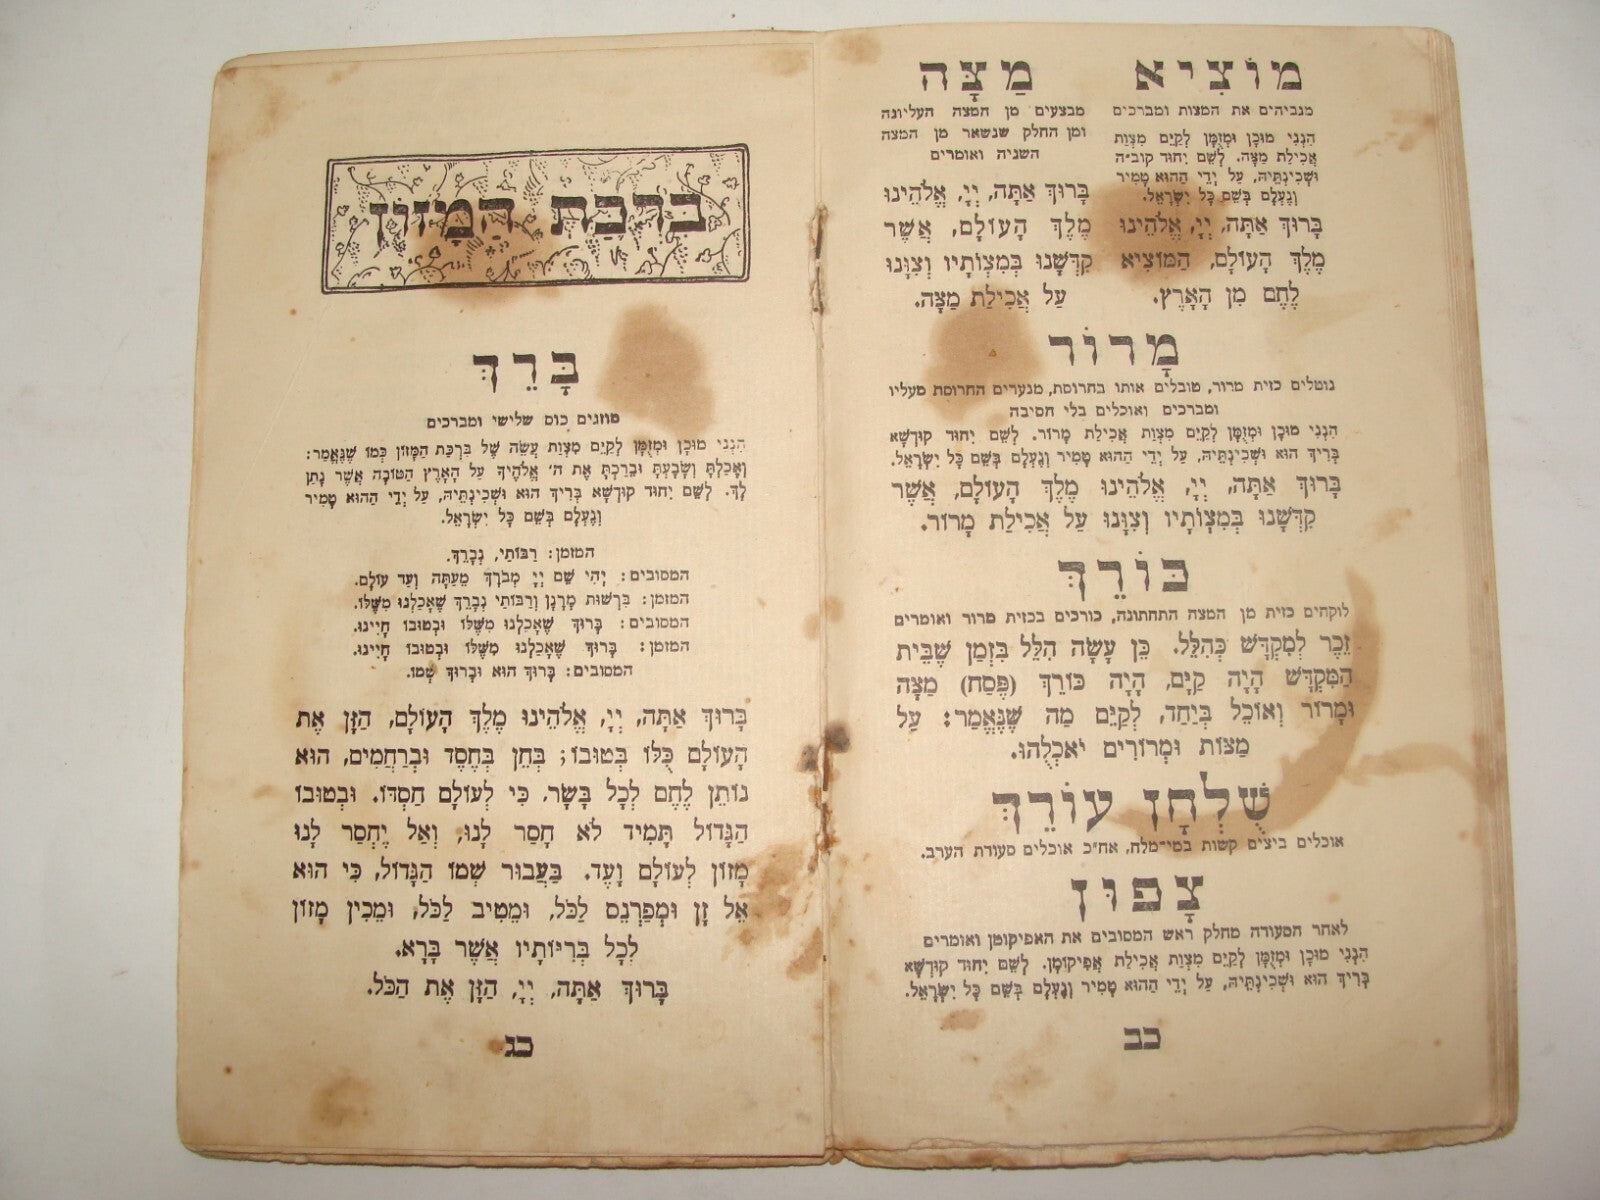 מוֹצִיא
מגביהים את המצות ומברכים
הִנְנִי מוּכָן וּמְזֻמָּן לְקַיֵּם מִצְוַת
אֲכִילַת מַצָּה. לְשֵׁם יִחוּד קוב״ה
וּשְׁכִינְתֵּיהּ, עַל יְדֵי הַהוּא טָמִיר
וְנֶעְלָם בְּשֵׁם כָּל יִשְׂרָאֵל.
בָּרוּךְ אַתָּה, יְיָ, אֱלֹהֵינוּ
מֶלֶךְ הָעוֹלָם, הַמּוֹצִיא
לֶחֶם מִן הָאָרֶץ.
מַצָּה
מבצעים מן המצה העליונה
ומן החלק שנשאר מן המצה
השניה ואומרים
בָּרוּךְ אַתָּה, יְיָ, אֱלֹהֵינוּ
מֶלֶךְ הָעוֹלָם, אֲשֶׁר
קִדְּשָׁנוּ בְּמִצְוֹתָיו וְצִוָּנוּ
עַל אֲכִילַת מַצָּה.
מָרוֹר
נוטלים כזית מרור, טובלים אותו בחרוסת, מנערים החרוסת מעליו
ומברכים ואוכלים בלי הסיבה
הִנְנִי מוּכָן וּמְזֻמָּן לְקַיֵּם מִצְוַת אֲכִילַת מָרוֹר. לְשֵׁם יִחוּד קוּדְשָׁא
בְּרִיךְ הוּא וּשְׁכִינְתֵּיהּ, עַל יְדֵי הַהוּא טָמִיר וְנֶעְלָם בְּשֵׁם כָּל יִשְׂרָאֵל.
בָּרוּךְ אַתָּה, יְיָ, אֱלֹהֵינוּ מֶלֶךְ הָעוֹלָם, אֲשֶׁר
קִדְּשָׁנוּ בְּמִצְוֹתָיו וְצִוָּנוּ עַל אֲכִילַת מָרוֹר.
כּוֹרֵךְ
לוקחים כזית מן המצה התחתונה, כורכים בכזית מרור ואומרים
זֵכֶר לְמִקְדָּשׁ כְּהִלֵּל. כֵּן עָשָׂה הִלֵּל בִּזְמַן שֶׁבֵּית
הַמִּקְדָּשׁ הָיָה קַיָּם, הָיָה כּוֹרֵךְ (פֶּסַח) מַצָּה
וּמָרוֹר וְאוֹכֵל בְּיַחַד, לְקַיֵּם מַה שֶּׁנֶּאֱמַר: עַל
מַצּוֹת וּמְרוֹרִים יֹאכְלֻהוּ.
שֻׁלְחָן עוֹרֵךְ
אוכלים ביצים קשות במי־מלח, אח״כ אוכלים סעודת הערב.
צָפוּן
לאחר הסעודה מחלק ראש המסובים את האפיקומן ואומרים
הִנְנִי מוּכָן וּמְזֻמָּן לְקַיֵּם מִצְוַת אֲכִילַת אֲפִיקוֹמָן. לְשֵׁם יִחוּד קוּדְשָׁא
בְּרִיךְ הוּא וּשְׁכִינְתֵּיהּ, עַל יְדֵי הַהוּא טָמִיר וְנֶעְלָם בְּשֵׁם כָּל יִשְׂרָאֵל.
כב
בִּרְכַּת הַמָּזוֹן
בָּרֵךְ
מוזגים כוס שלישי ומברכים
הִנְנִי מוּכָן וּמְזֻמָּן לְקַיֵּם מִצְוַת עֲשֵׂה שֶׁל בִּרְכַּת הַמָּזוֹן כְּמוֹ שֶׁנֶּאֱמַר:
וְאָכַלְתָּ וְשָׂבָעְתָּ וּבֵרַכְתָּ אֶת ה׳ אֱלֹהֶיךָ עַל הָאָרֶץ הַטּוֹבָה אֲשֶׁר נָתַן
לָךְ. לְשֵׁם יִחוּד קוּדְשָׁא בְּרִיךְ הוּא וּשְׁכִינְתֵּיהּ, עַל יְדֵי הַהוּא טָמִיר
וְנֶעְלָם בְּשֵׁם כָּל יִשְׂרָאֵל.
המזמן: רַבּוֹתַי, נְבָרֵךְ.
המסובים: יְהִי שֵׁם יְיָ מְבֹרָךְ מֵעַתָּה וְעַד עוֹלָם.
המזמן: בִּרְשׁוּת מָרָנָן וְרַבּוֹתַי נְבָרֵךְ שֶׁאָכַלְנוּ מִשֶּׁלּוֹ.
המסובים: בָּרוּךְ שֶׁאָכַלְנוּ מִשֶּׁלּוֹ וּבְטוּבוֹ חָיִינוּ.
המזמן: בָּרוּךְ שֶׁאָכַלְנוּ מִשֶּׁלּוֹ וּבְטוּבוֹ חָיִינוּ.
המסובים: בָּרוּךְ הוּא וּבָרוּךְ שְׁמוֹ.
בָּרוּךְ אַתָּה, יְיָ, אֱלֹהֵינוּ מֶלֶךְ הָעוֹלָם, הַזָּן אֶת
הָעוֹלָם כֻּלּוֹ בְּטוּבוֹ; בְּחֵן בְּחֶסֶד וּבְרַחֲמִים, הוּא
נוֹתֵן לֶחֶם לְכָל בָּשָׂר, כִּי לְעוֹלָם חַסְדּוֹ. וּבְטוּבוֹ
הַגָּדוֹל תָּמִיד לֹא חָסַר לָנוּ, וְאַל יֶחְסַר לָנוּ
מָזוֹן לְעוֹלָם וָעֶד. בַּעֲבוּר שְׁמוֹ הַגָּדוֹל, כִּי הוּא
אֵל זָן וּמְפַרְנֵס לַכֹּל, וּמֵטִיב לַכֹּל, וּמֵכִין מָזוֹן
לְכָל בְּרִיּוֹתָיו אֲשֶׁר בָּרָא.
בָּרוּךְ אַתָּה, יְיָ, הַזָּן אֶת הַכֹּל.
כג